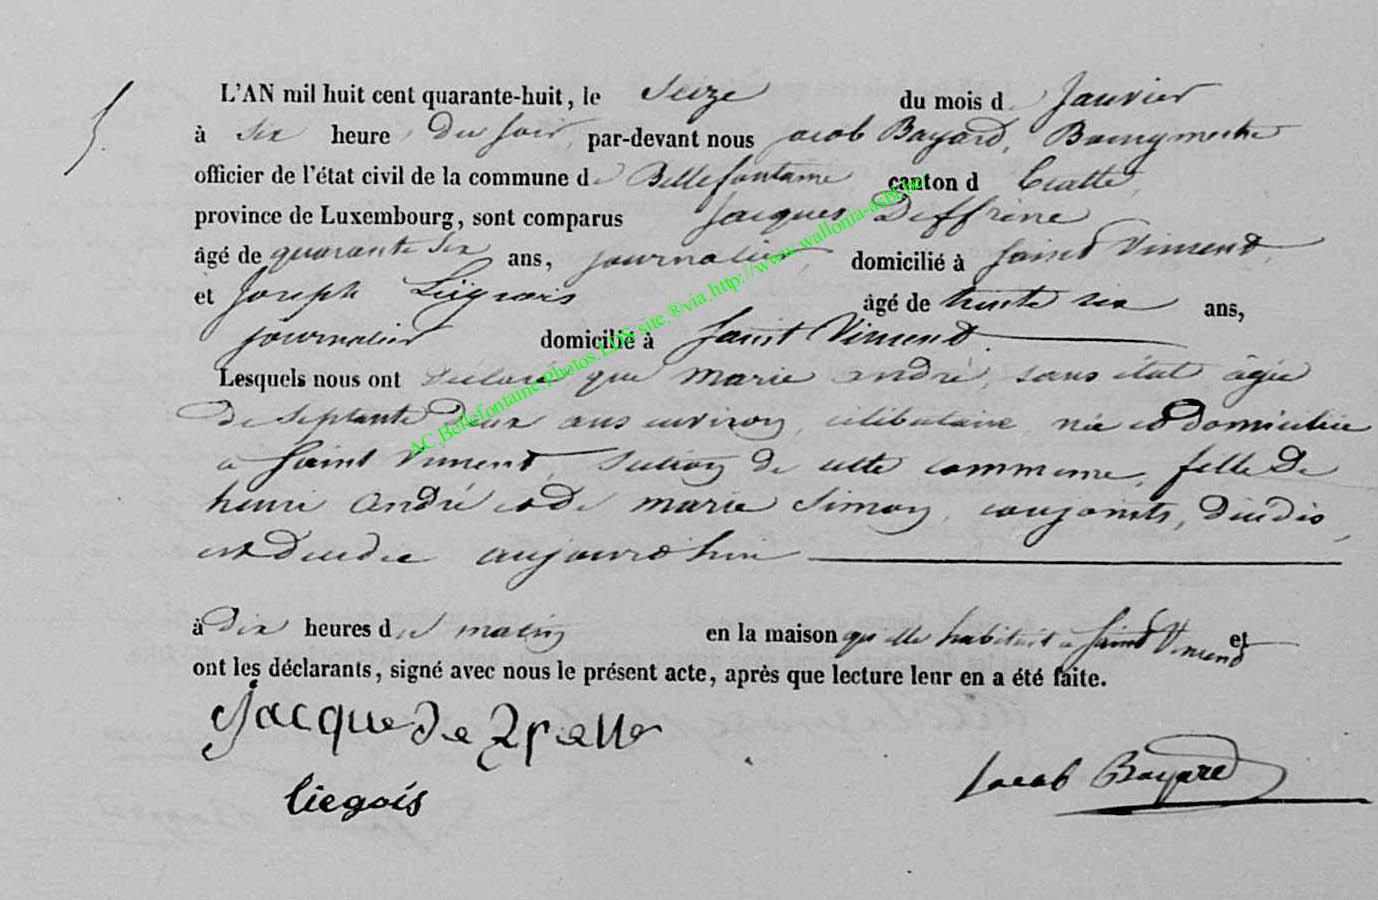 5.
L'AN mil huit cent quarante-huit, le Seize du mois de Janvier
à six heures du soir, par-devant nous Jacob Bayard, Bourgmestre
officier de l'état civil de la commune de Bellefontaine canton d'Etalle,
province de Luxembourg, sont comparus Jacques Deffrène
âgé de quarante six ans, journalier, domicilié à Saint Vincent,
et Joseph Liégeois âgé de trente six ans,
journalier domicilié à Saint Vincent.
Lesquels nous ont déclaré que marie andré, sans état âgée
de septante deux ans environ, célibataire, née et domiciliée
à Saint Vincent, section de cette commune, fille de
henri andré et de marie Simon, conjoints, décédés,
est décédée aujourd'hui
à dix heures du matin en la maison qu'elle habitait à Saint Vincent et
ont les déclarants, signé avec nous le présent acte, après que lecture leur en a été faite.
Jacque
liegois
Jacob Bayard
AC.Bellefontaine.Photos.LDS.site.®via.http://www.wallonia-asbl.be